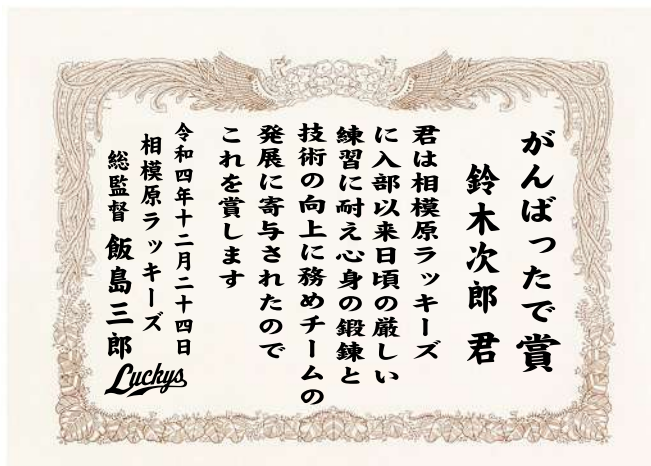 がんばったで賞
鈴木次郎 君
君は相模原ラッキーズ
に入部以来日頃の厳しい
練習に耐え心身の鍛錬と
技術の向上に務めチームの
発展に寄与されたので
これを賞します
令和四年十二月二十四日
相模原ラッキーズ
総監督 飯島三郎
Luckys